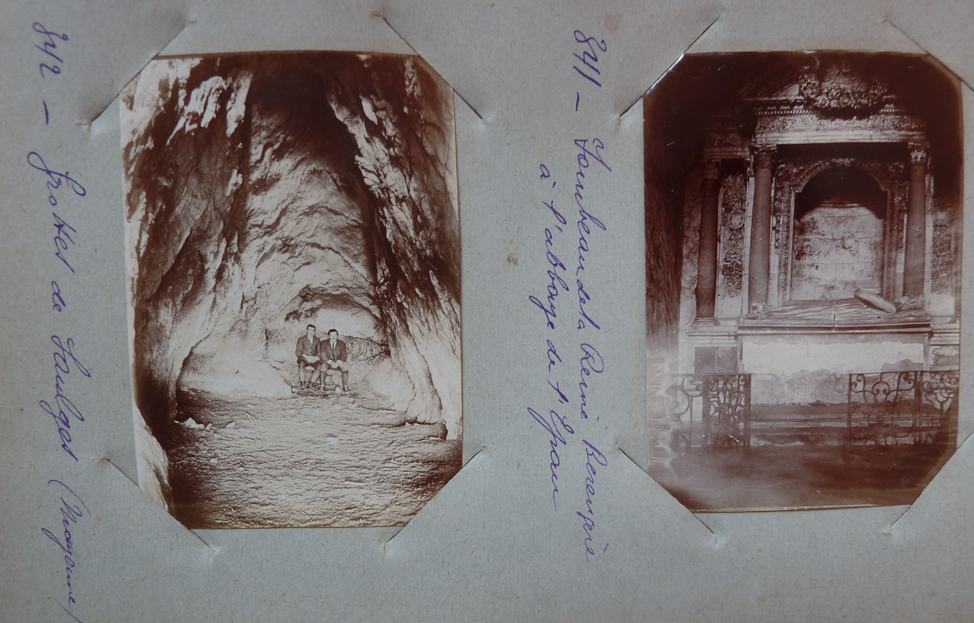 3412 - Grottes de Saulges (Mayenne)
3411 - Tombeau de la Reine Berengère
à l'abbaye de l'Epau